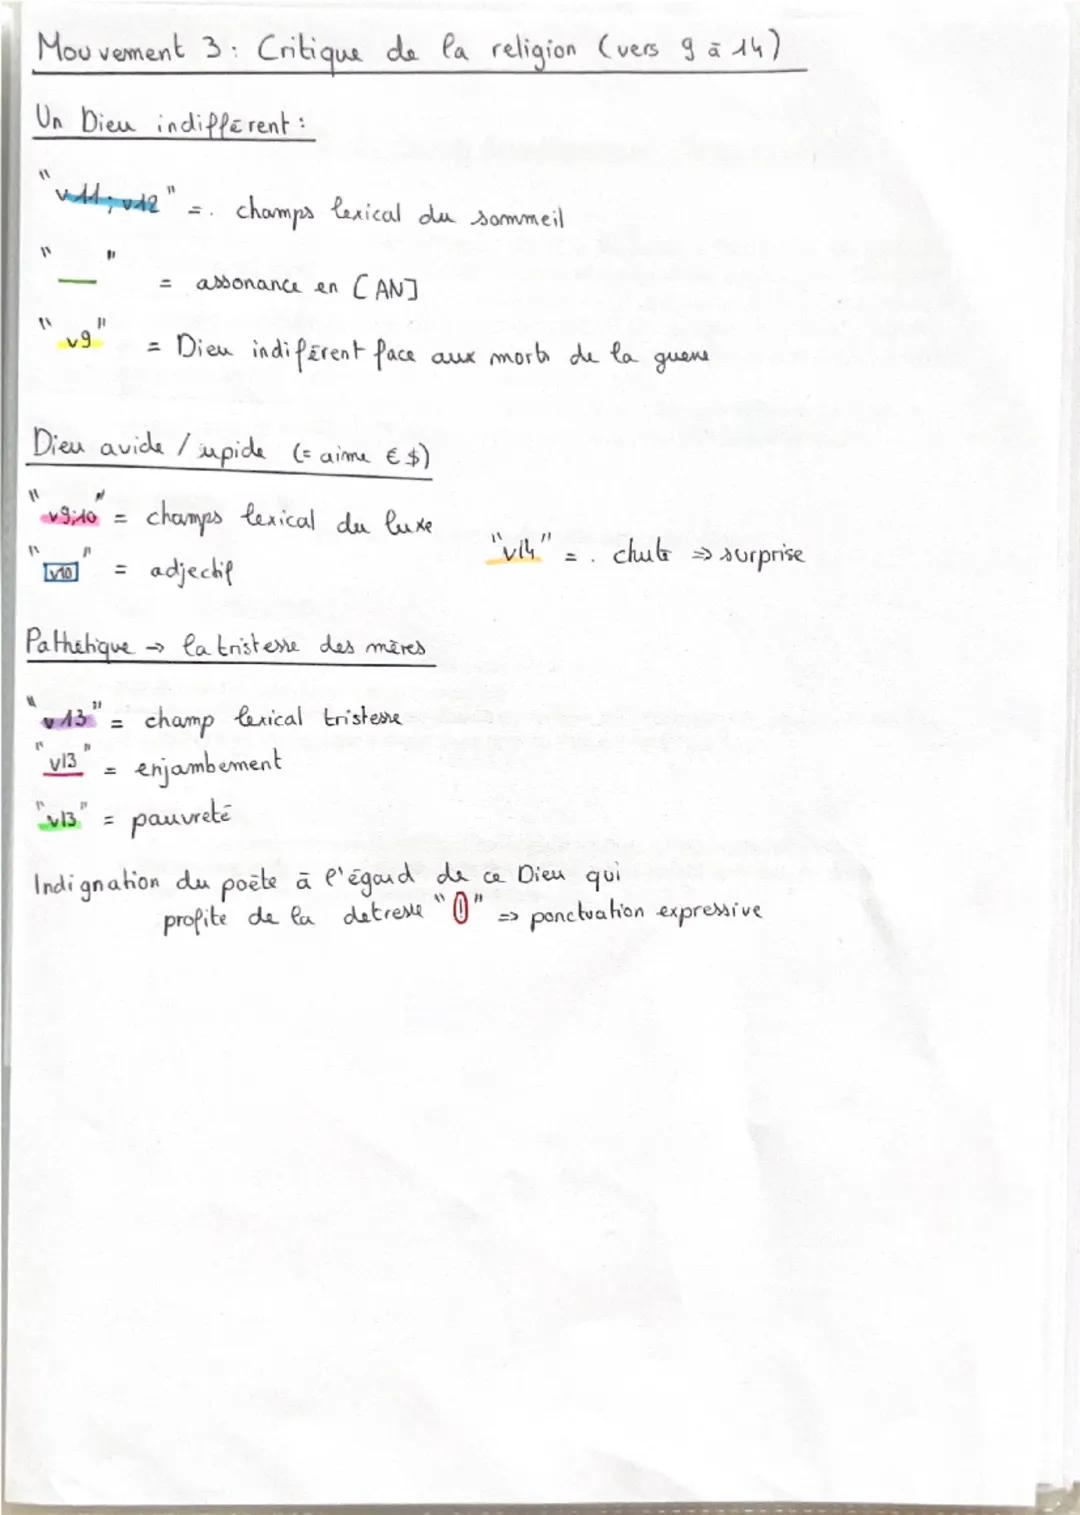 Mouvement 3 : Critique de la religion (vers 9 à 14)
Un Dieu indifférent :
"v11 ; v12" = . champs lexical du sommeil
" — " = assonance en [AN]
"v9" = Dieu indiférent face aux morts de la guerre
Dieu avide / cupide (= aime € $)
"v9;10" = champs lexical du luxe
"v10" = adjectif
"v14" = . chute => surprise
Pathétique → la tristesse des mères
"v13" = champ lexical tristesse
"v13" = enjambement
"v13" = pauvreté
Indignation du poète à l'égard de ce Dieu qui
profite de la detresse "!" => ponctuation expressive